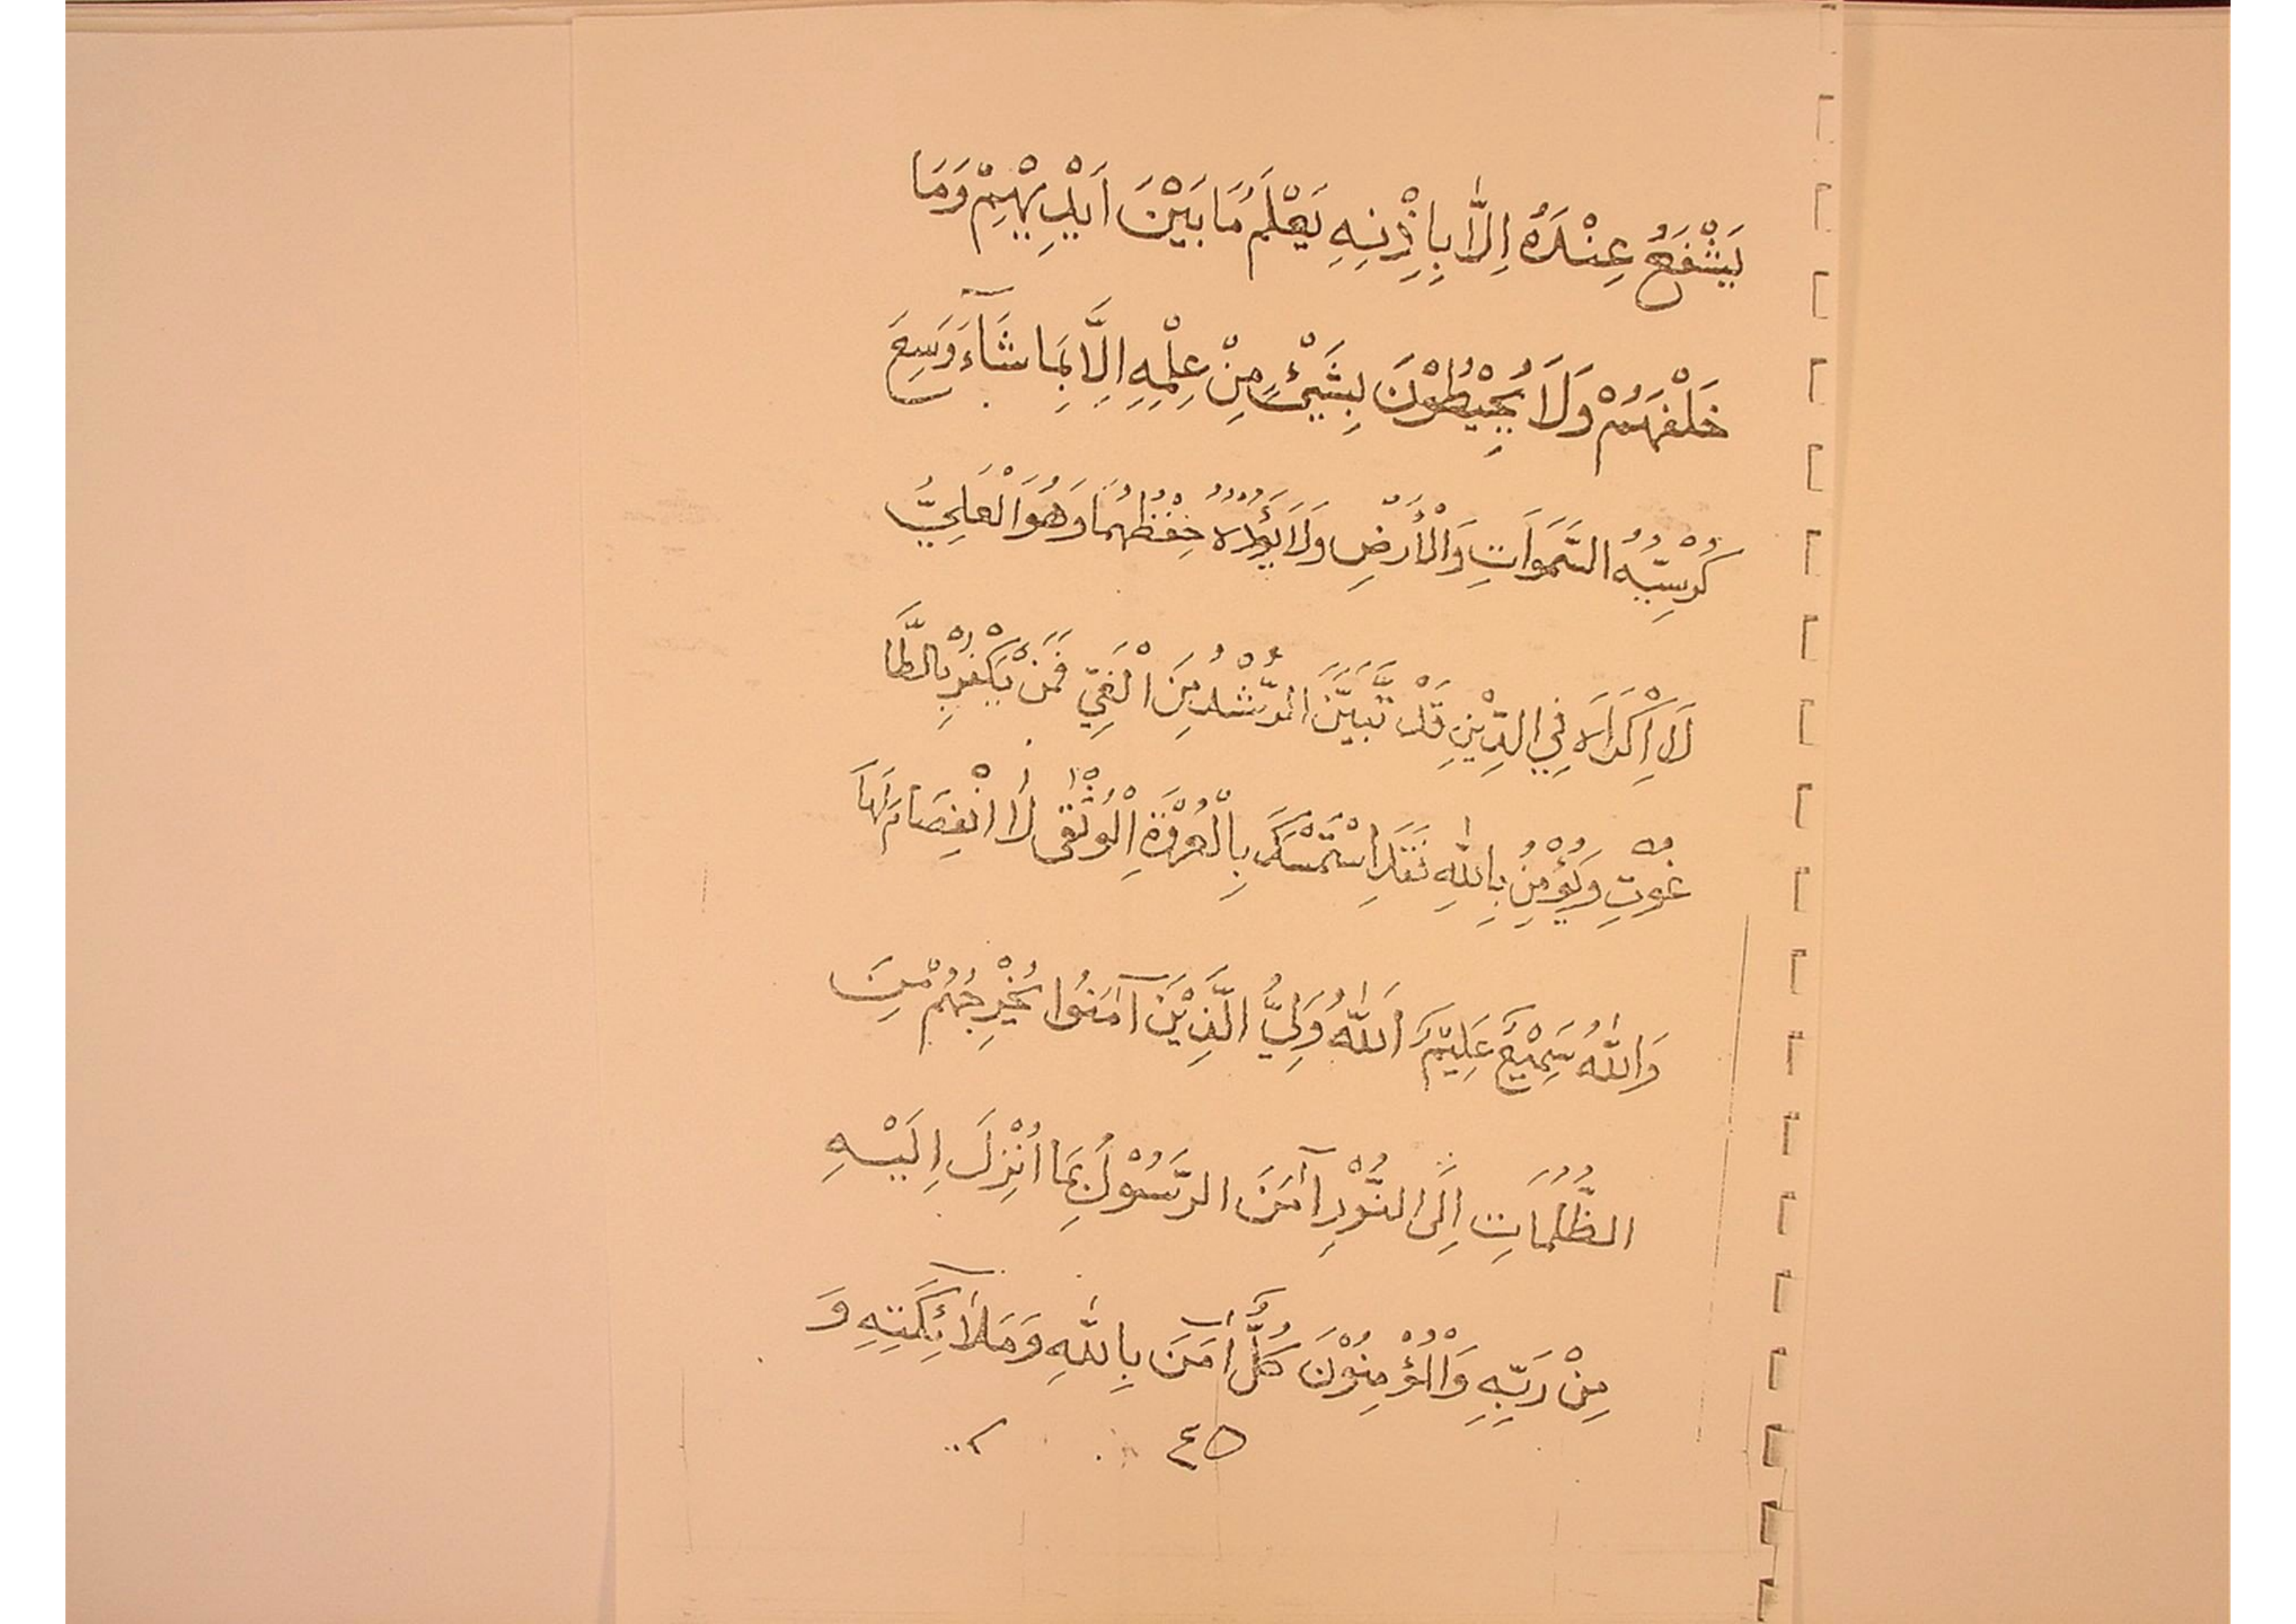 يَشْفَعُ عِنْدَهُ اِلَّا بِاِذْنِهِ يَعْلَمُ مَا بَيْنَ اَيْدِيْهِمْ وَمَا
خَلْفَهُمْ وَلَا يُحِيْطُوْنَ بِشَيْئٍ مِنْ عِلْمِهِ اِلَّا بِمَا شَآءَ وَسِعَ
كُرْسِيُّهُ السَّمَوَاتِ وَالْأَرْضِ وَلَا يَؤُدُهُ حِفْظُهُمَا وَهُوَ الْعَلِيُّ
لَا اِكْرَاهَ فِي الدِّيْنِ قَدْ تَّبَيَّنَ الرُّشْدُ مِنَ الْغَيِّ فَمَنْ يَكْفُرْ بِالطَّا
غُوْتِ وَيُؤْمِنْ بِاللّٰهِ فَقَدِ اسْتَمْسَكَ بِالْعُرْوَةِ الْوُثْقٰى لَا انْفِصَامَ لَهَا
وَاللّٰهُ سَمِيْعٌ عَلِيْمٌ اَللّٰهُ وَلِيُّ الَّذِيْنَ آمَنُوا يُخْرِجُهُمْ مِنَ
الظُّلُمَاتِ اِلَى النُّوْرِ آمَنَ الرَّسُوْلُ بِمَا اُنْزِلَ اِلَيْهِ
مِنْ رَبِّهِ وَالْمُؤْمِنُوْنَ كُلٌّ آمَنَ بِاللّٰهِ وَمَلَآئِكَتِهِ وَ
٤٥